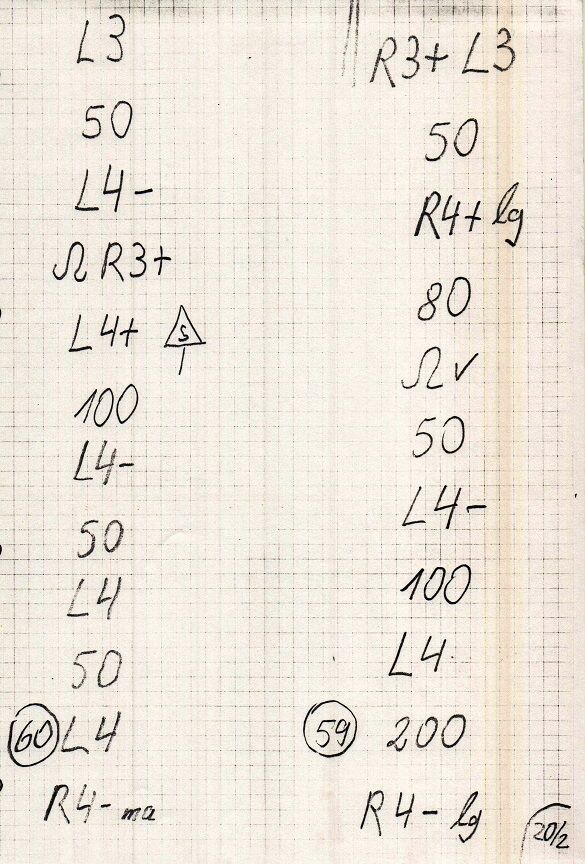 L3
50
L4-
Ω R3+
L4+ S
100
L4-
50
L4
50
60 L4
R4- ma
R3+ L3
50
R4+ lg
80
Ω ✓
50
L4-
100
L4
59 200
R4- lg
20/2